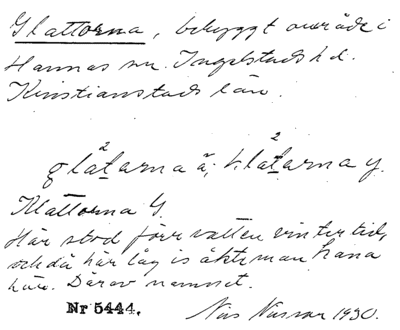 Glattorna, bebyggt område i
Hannas sn. Ingelstads hd.
Kristianstads län.
glatarna ä; klatarna y.
Klattorna y.
Här stod förr vatten vintertid,
och då här låg is åkte man kana
här. Därav namnet.
Nr 5444.
Nils 1930.